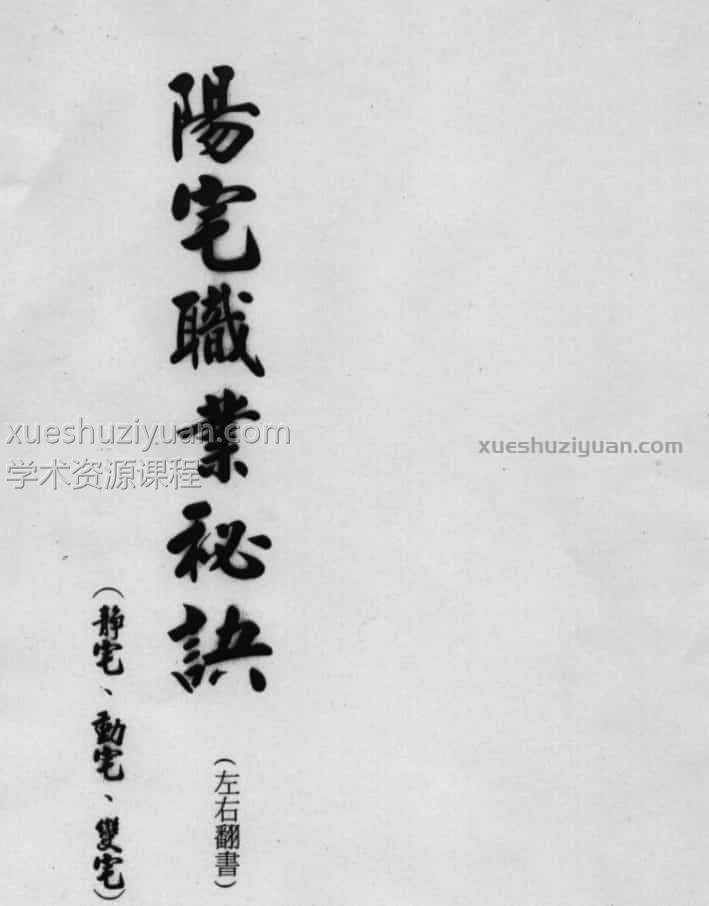 陽宅職業秘訣
(左右翻書)
(靜宅、動宅、變宅)
xueshuziyuan.com
学术资源课程
xueshuziyuan.com